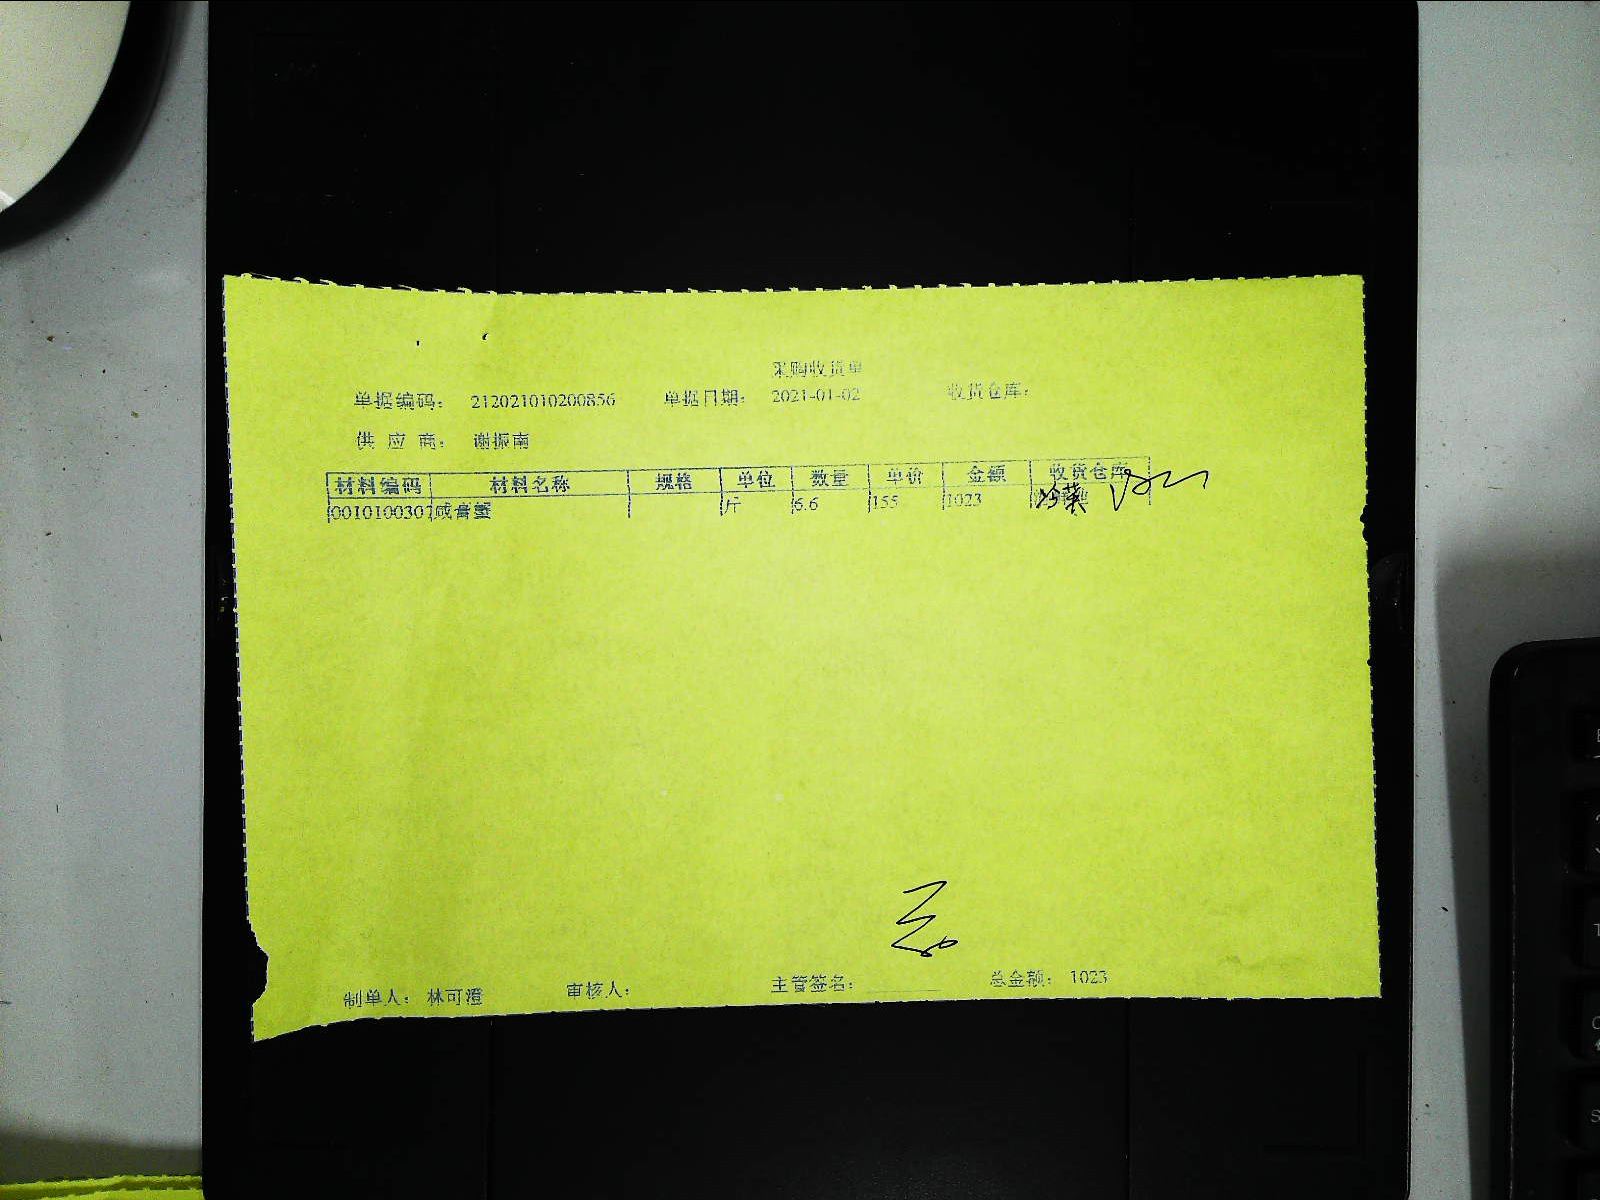 采购收货单
单据编码： 212021010200856 单据日期： 2021-01-02 收货仓库：
供 应 商： 谢振南
材料编码 材料名称 规格 单位 数量 单价 金额 收货仓库
0010100307 咸膏蟹 斤 6.6 155 1023
制单人： 林可澄 审核人： 主管签名： 总金额： 1023